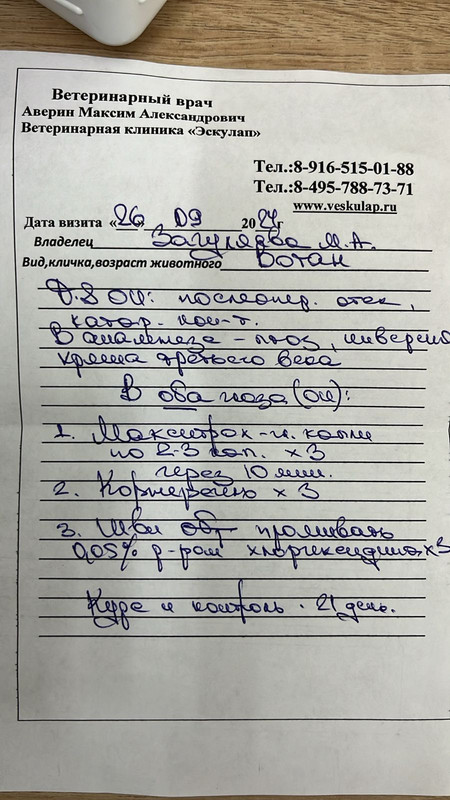 Ветеринарный врач
Аверин Максим Александрович
Ветеринарная клиника «Эскулап»
Тел.:8-916-515-01-88
Тел.:8-495-788-73-71
www.veskulap.ru
Дата визита «26» 09 2024г
Владелец М.А.
Вид,кличка,возраст животного Вотан
OU: послеопер. отек,
катар. кон-т.
В анамнезе - птоз,
хряща третьего века
В оба глаза (OU):
1. Макситрол - гл. капли
по 2-3 кап. х3
через 10 мин.
2. Корнерегель х 3
3. Швы обр промывать
0,05% р-ром хлоргексидина х3
Курс и контроль - 21 день.